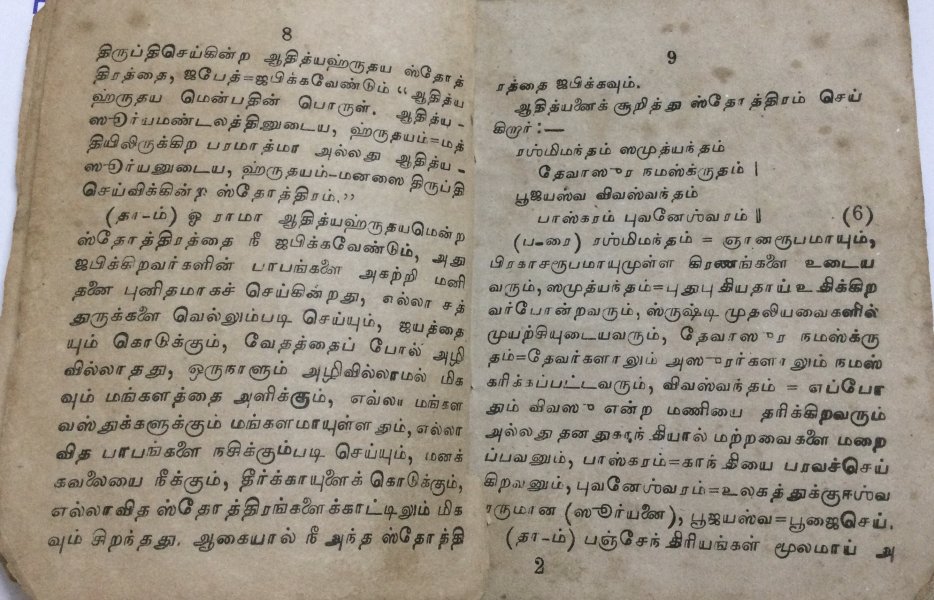 8
திருப்திசெய்கின்ற ஆதித்யஹ்ருதய ஸ்தோத்
திரத்தை, ஜபேத்=ஜபிக்கவேண்டும் “ஆதித்ய
ஹ்ருதய மென்பதின் பொருள். ஆதித்ய-
ஸூர்யமண்டலத்தினுடைய, ஹ்ருதயம்=மத்
தியிலிருக்கிற பரமாத்மா அல்லது ஆதித்ய-
ஸூர்யனுடைய, ஹ்ருதயம்-மனஸை திருப்தி
செய்விக்கின்ற ஸ்தோத்திரம்.”
(தா-ம்) ஓ ராமா ஆதித்யஹ்ருதயமென்ற
ஸ்தோத்திரத்தை நீ ஜபிக்கவேண்டும், அது
ஜபிக்கிறவர்களின் பாபங்களை அகற்றி மனி
தனை புனிதமாகச் செய்கின்றது, எல்லா சத்
துருக்களை வெல்லும்படி செய்யும், ஜயத்தை
யும் கொடுக்கும், வேதத்தைப் போல் அழி
வில்லாதது, ஒருநாளும் அழிவில்லாமல் மிக
வும் மங்களத்தை அளிக்கும், எவ்லா மங்கள
வஸ்துக்களுக்கும் மங்களமாயுள்ளதும், எல்லா
வித பாபங்களை நசிக்கும்படி செய்யும், மனக்
கவலையை நீக்கும், தீர்க்காயுளைக் கொடுக்கும்,
எல்லாவித ஸ்தோத்திரங்களைக்காட்டிலும் மிக
வும் சிறந்தது. ஆகையால் நீ அந்த ஸ்தோத்தி
9
ரத்தை ஜபிக்கவும்.
ஆதித்யனைக் குறித்து ஸ்தோத்திரம் செய்
கிறார்:—
ரஶ்மிமந்தம் ஸமுத்யந்தம்
தேவாஸுர நமஸ்க்ருதம் |
பூஜயஸ்வ விவஸ்வந்தம்
பாஸ்கரம் புவனேஶ்வரம் || (6)
(ப-ரை) ரஶ்மிமந்தம் = ஞானரூபமாயும்,
பிரகாசரூபமாயுமுள்ள கிரணங்களை உடைய
வரும், ஸமுத்யந்தம்=புதுபுதியதாய் உதிக்கிற
வர்போன்றவரும், ஸ்ருஷ்டி முதலியவைகளில்
முயற்சியுடையவரும், தேவாஸுர நமஸ்க்ரு
தம்=தேவர்களாலும் அஸுரர்களாலும் நமஸ்
கரிக்கப்பட்டவரும், விவஸ்வந்தம் = எப்போ
தும் விவஸு என்ற மணியை தரிக்கிறவரும்
அல்லது தனதுகாந்தியால் மற்றவைகளை மறை
ப்பவனும், பாஸ்கரம்=காந்தியை பரவச்செய்
கிறவனும், புவனேஶ்வரம்=உலகத்துக்குஈஶ்வ
ரருமான (ஸூர்யனை), பூஜயஸ்வ=பூஜைசெய்.
(தா-ம்) பஞ்சேந்திரியங்கள் மூலமாய் அ
2